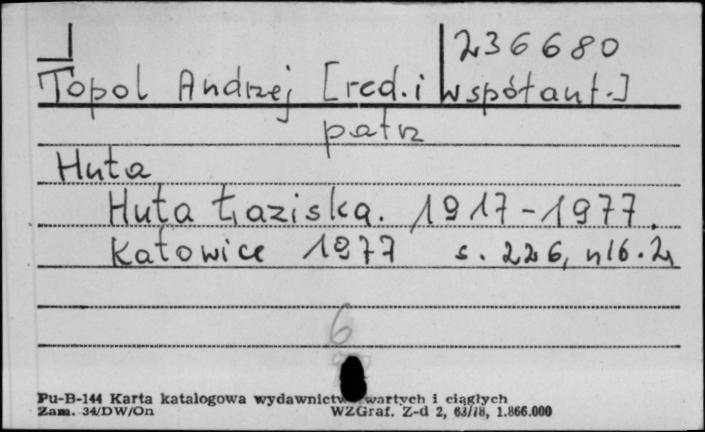 236680
Topol Andrzej [red. i współaut.]
patrz
Huta
Huta Łaziska. 1917-1977.
Katowice 1977 s. 226, nlb. 2
6
Pu-B-144 Karta katalogowa wydawnictw zwartych i ciągłych
Zam. 34/DW/On WZGraf. Z-d 2, 63/78, 1.866.000